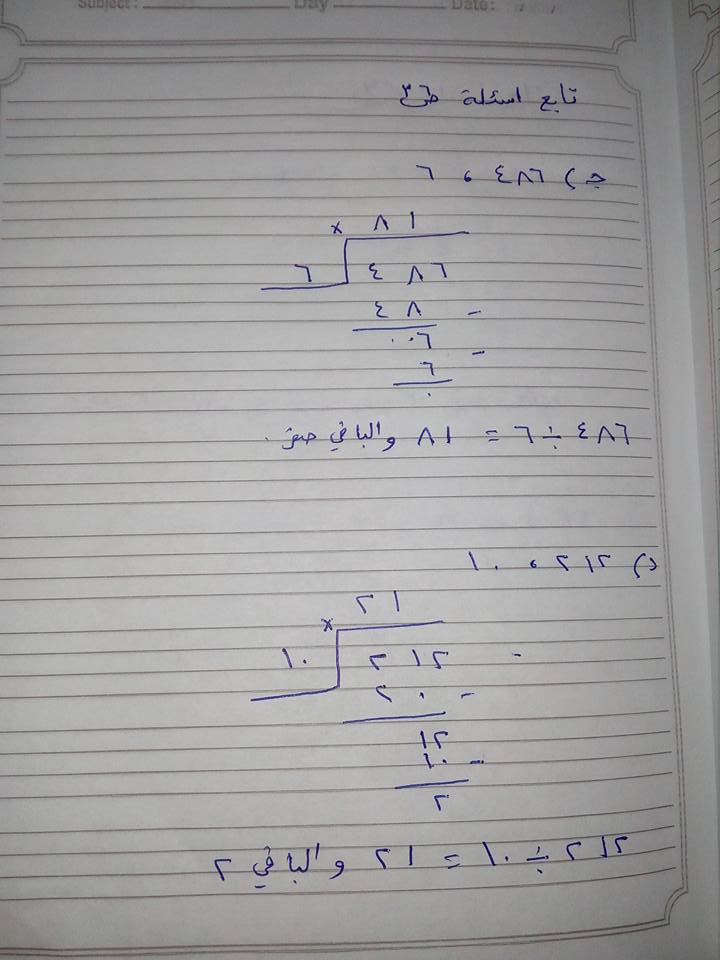 Subject : Day Date:
تابع اسئلة ص٣
جـ) ٤٨٦ ، ٦
× ٨ ١
٦ ٤ ٨ ٦
٤ ٨ -
٠٠٦ -
٦
٠
٤٨٦ ÷ ٦ = ٨١ والباقي صفر .
د) ٢١٢ ، ١٠
× ٢ ١
١٠ ٢ ١٢ -
٢ ٠ -
١٢
١٠ -
٢
٢١٢ ÷ ١٠ = ٢١ والباقي ٢